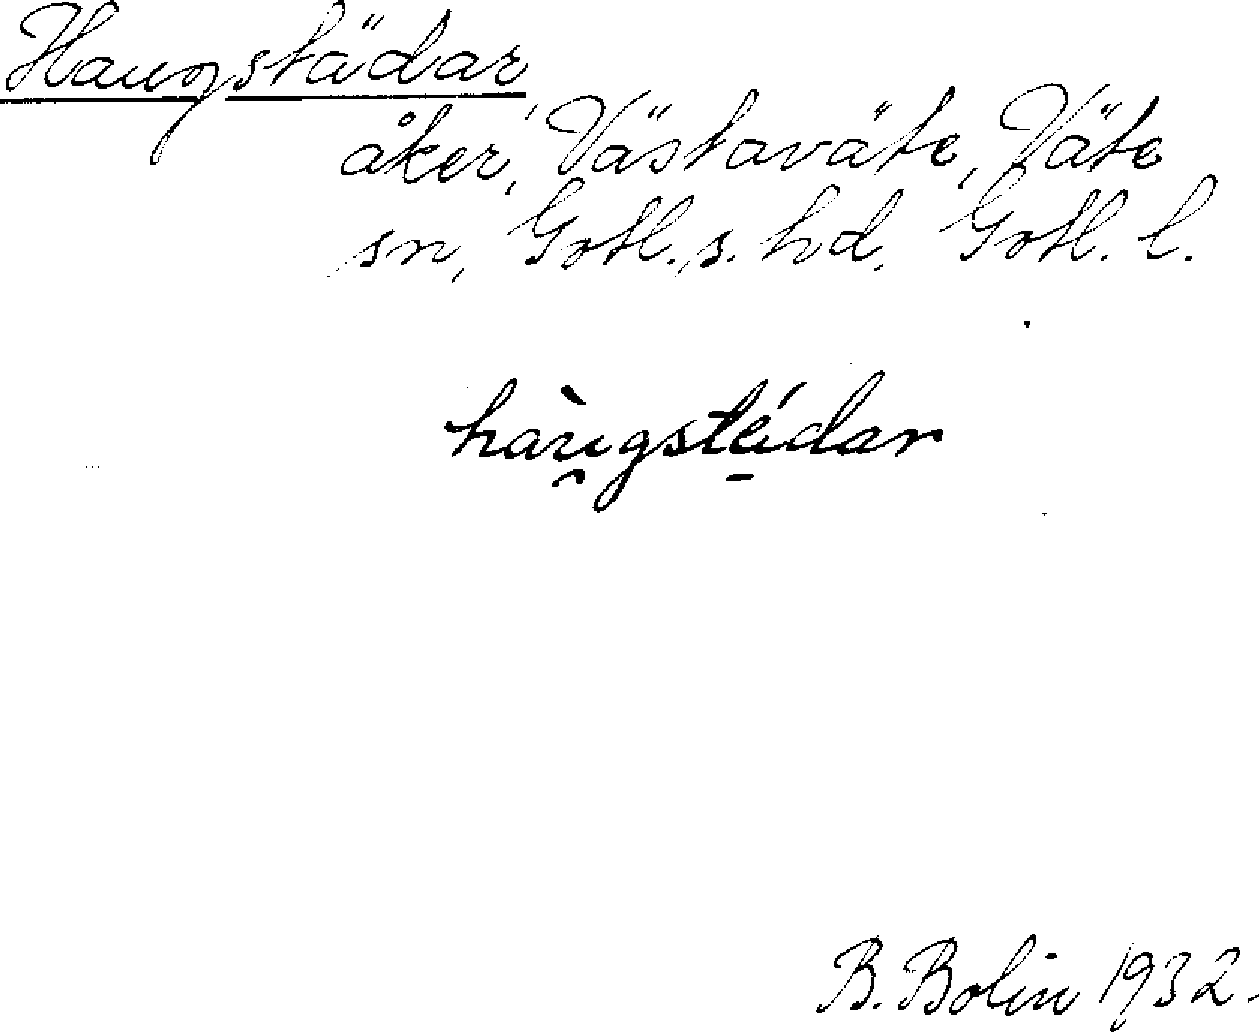 Haugstädar
åker, Västaväte, Väte
sn, Gotl. s. hd. Gotl. l.
hàu̯gsté̠dar
B. Bolin 1932.